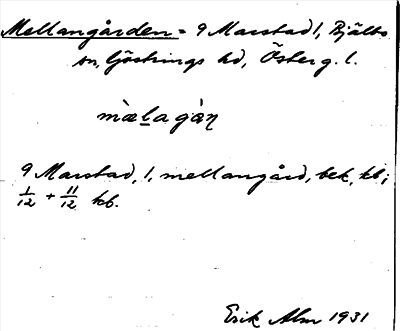 Mellangården = 9 Marstad 1, Bjälbo
sn, Göstrings hd, Österg. l.
mæ̀lagàn̥
9 Marstad, 1, mellangård, bek, kb;
1/12 + 11/12 kb.
Erik Alm 1931